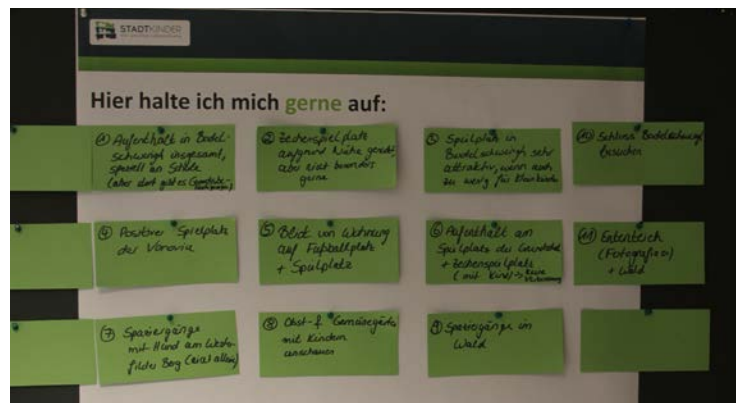 STADTKINDER
Hier halte ich mich gerne auf:
① Aufenthalt in Bodel-
schwingh insgesamt,
speziell an Schule
(aber dort gibt es
② Zechenspielplatz
aufgrund Nähe genutzt,
aber nicht besonders
gerne
③ Spielplatz in
Bodelschwingh sehr
attraktiv, wenn auch
zu wenig für Kleinkinder
⑩ Schloss Bodelschwingh
besuchen
④ Positiver Spielplatz
der Vonovia
⑤ Blick von Wohnung
auf Fußballplatz
+ Spielplatz
⑥ Aufenthalt am
Spielplatz der Grundschule
+ Zechenspielplatz
(mit Kind) → keine
⑪ Ententeich
(Fotografieren)
+ Wald
⑦ Spaziergänge
mit Hund am Wester-
filder Berg (nicht allein)
⑧ Obst- & Gemüsegärten
mit Kindern
anschauen
⑨ Spaziergänge im
Wald